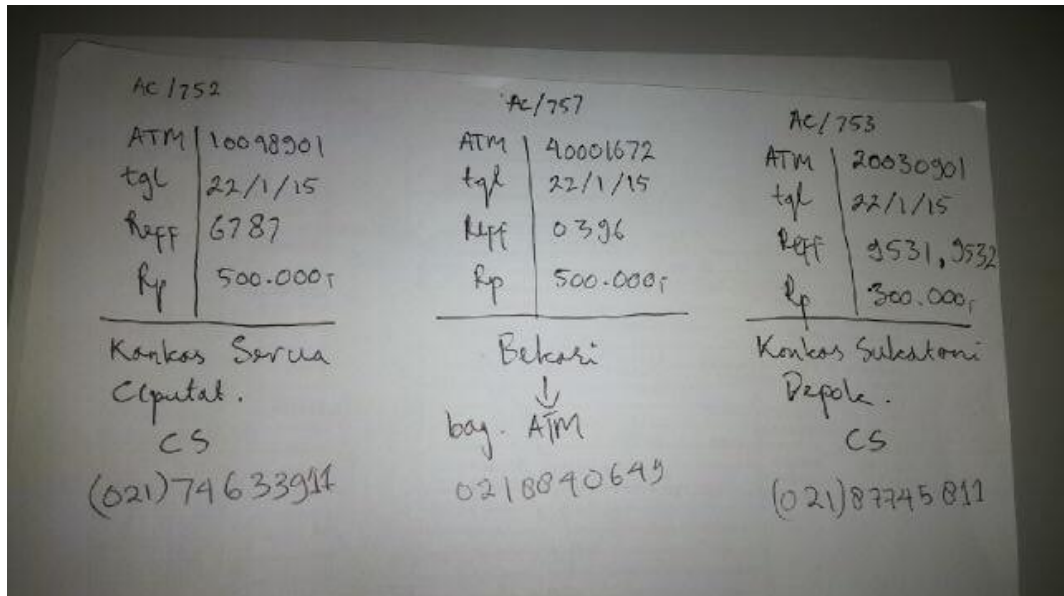 AC/752
ATM 10098901
tgl 22/1/15
Reff 6787
Rp 500.000,-
Kankas Serua
Ciputat.
CS
(021)74633911
AC/757
ATM 40001672
tgl 22/1/15
Reff 0396
Rp 500.000,-
Bekasi
↓
bag. ATM
0218840649
AC/753
ATM 20030901
tgl 22/1/15
Reff 9531, 9532
Rp 300.000,-
Kankas Sukatani
Depok.
CS
(021)87745811